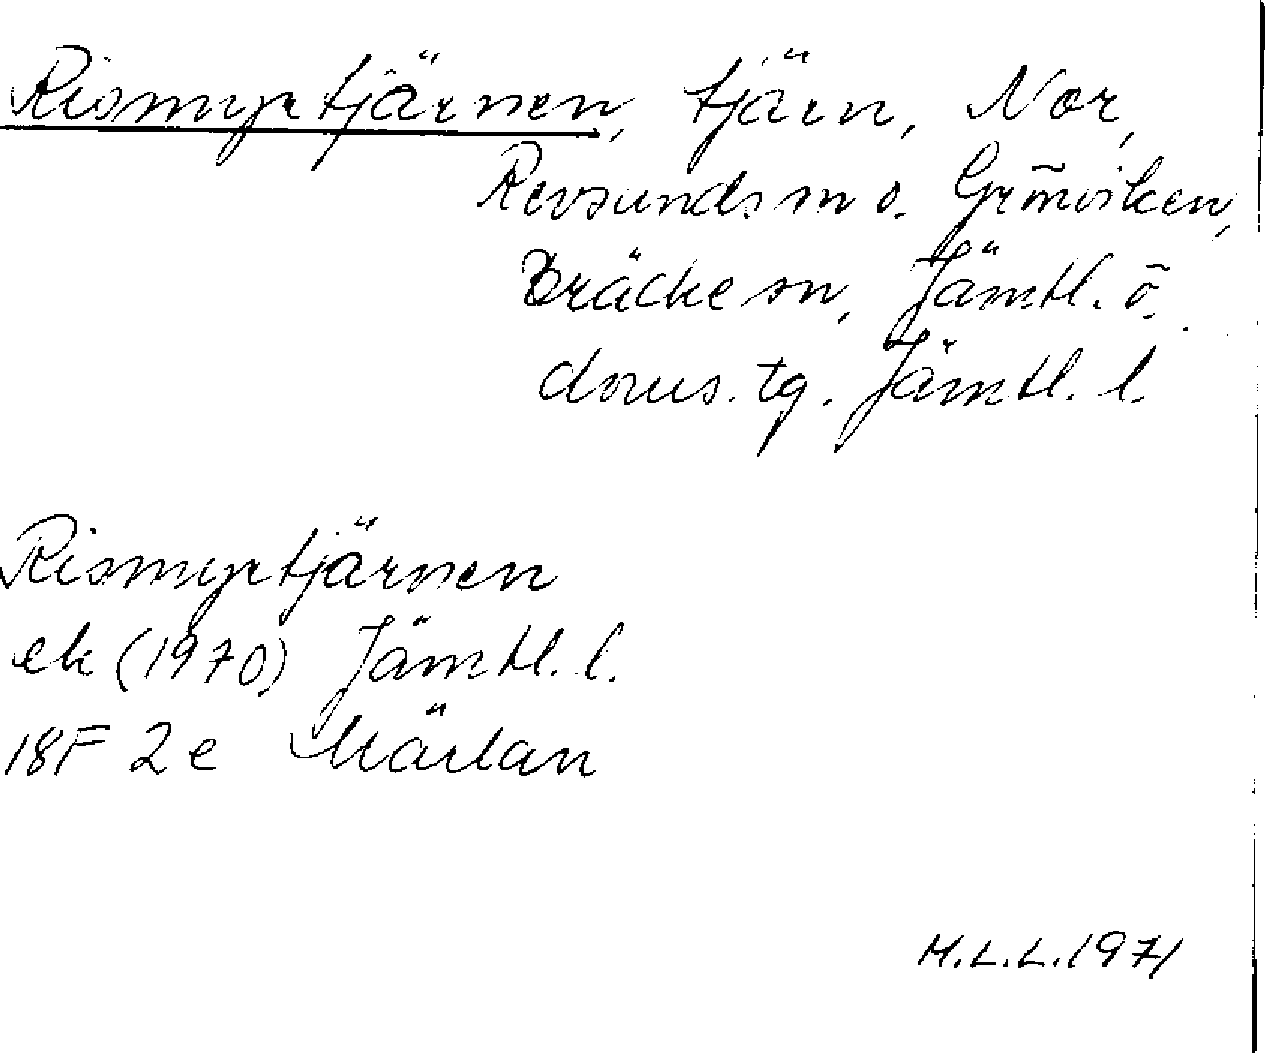 Rismyrtjärnen, tjärn, Nor,
Revsunds sn o. Grönviken,
Bräcke sn, Jämtl. ö.
doms. tg. Jämtl. l.
Rismyrtjärnen
ek (1970) Jämtl. l.
18F 2e Märlan
M.L.L. 1971